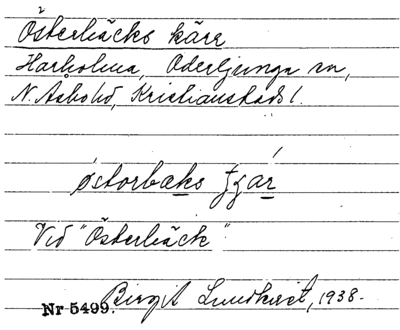 Österbäcks kärr
Harholma, Oderljunga sn,
N. Åsbo hd, Kristianstads l.
östorbaks kär
Vid "Österbäck"
Nr 5499. Birgit Lundkvist, 1938.